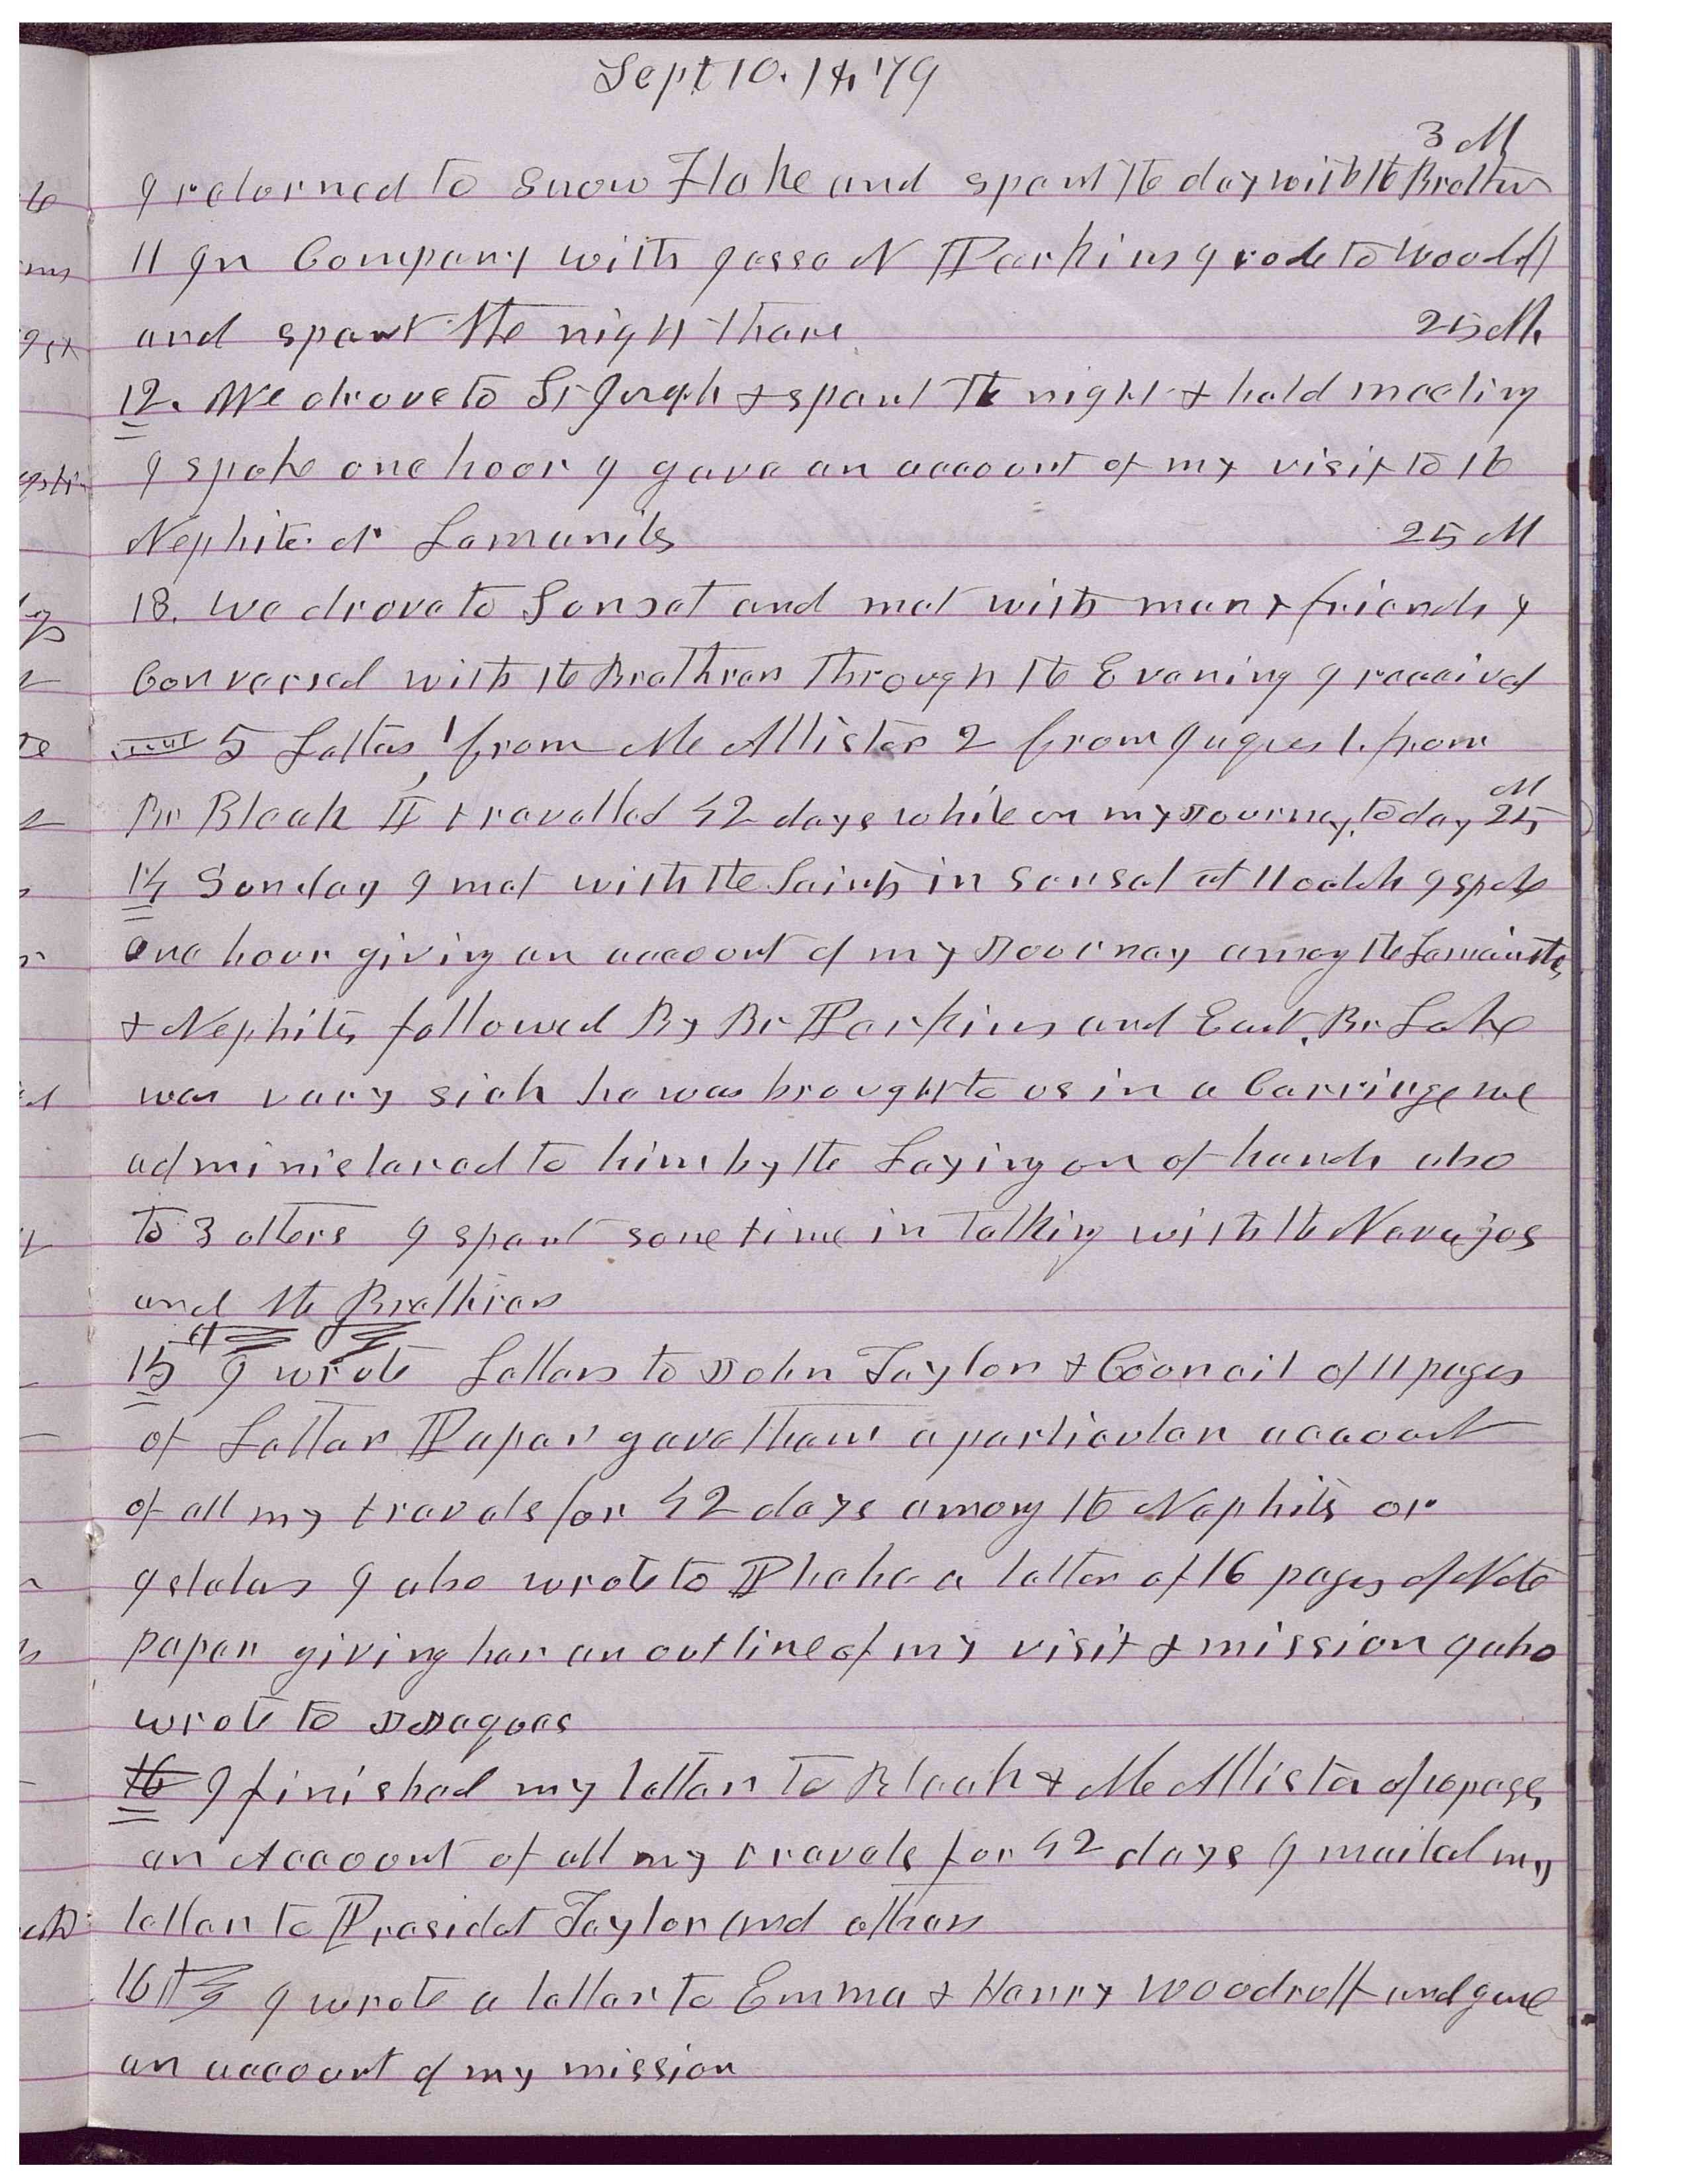 Sept 10. 1879
3 M
I returned to Snow Flake and spent the day with the Brethren
11 In Company with Jesse N Perkins I rode to Woodruff
and spent the night there 25 M.
12. We drove to St Joseph & spent the night & held meeting
I spoke one hour I gave an account of my visit to the
Nephite or Lamanites 25 M
13. We drove to Sunset and met with many friends &
Conversed with the Brethren through the Evening I received
5 Letters 1 from McAllister 2 from Jaques 1. from
M
Br Bleak I travelled 42 days while on my Journey, today 25
14 Sunday I met with the Saints in Sunset at 11 oclok I spoke
one hour giving an account of my Journey among the Lamanites
& Nephites followed By Br Perkins and East. Br Lake
was very sick he was brought to us in a Carriage we
administered to him by the Laying on of hands also
to 3 others I spent some time in Talking with the Navajos
and the Brethren
15 I wrote Letters to John Taylor & Council of 11 pages
of Letter Paper gave them a particular account
of all my travels for 42 days among the Nephites or
Isletas I also wrote to Phebe a letter of 16 pages of Note
paper giving her an outline of my visit & mission I also
wrote to Jaques
16 I finished my letter to Bleak & McAllister of 10 pages
an Account of all my travels for 42 days I mailed my
letter to Presidet Taylor and others
16th I wrote a letter to Emma & Henry Woodruff and gave
an account of my mission